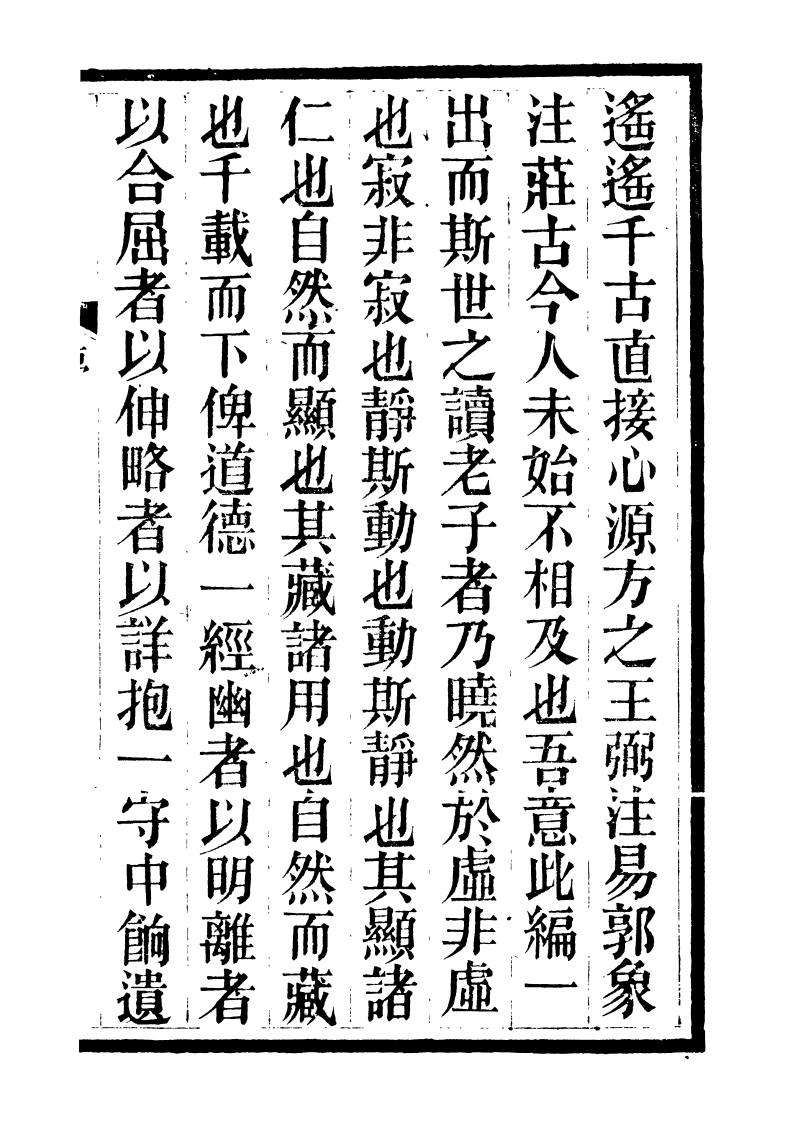 遙遙千古直接心源方之王弼注易郭象
注莊古今人未始不相及也吾意此編一
出而斯世之讀老子者乃曉然於虛非虛
也寂非寂也靜斯動也動斯靜也其顯諸
仁也自然而顯也其藏諸用也自然而藏
也千載而下俾道德一經幽者以明離者
以合屈者以伸略者以詳抱一守中餉遺